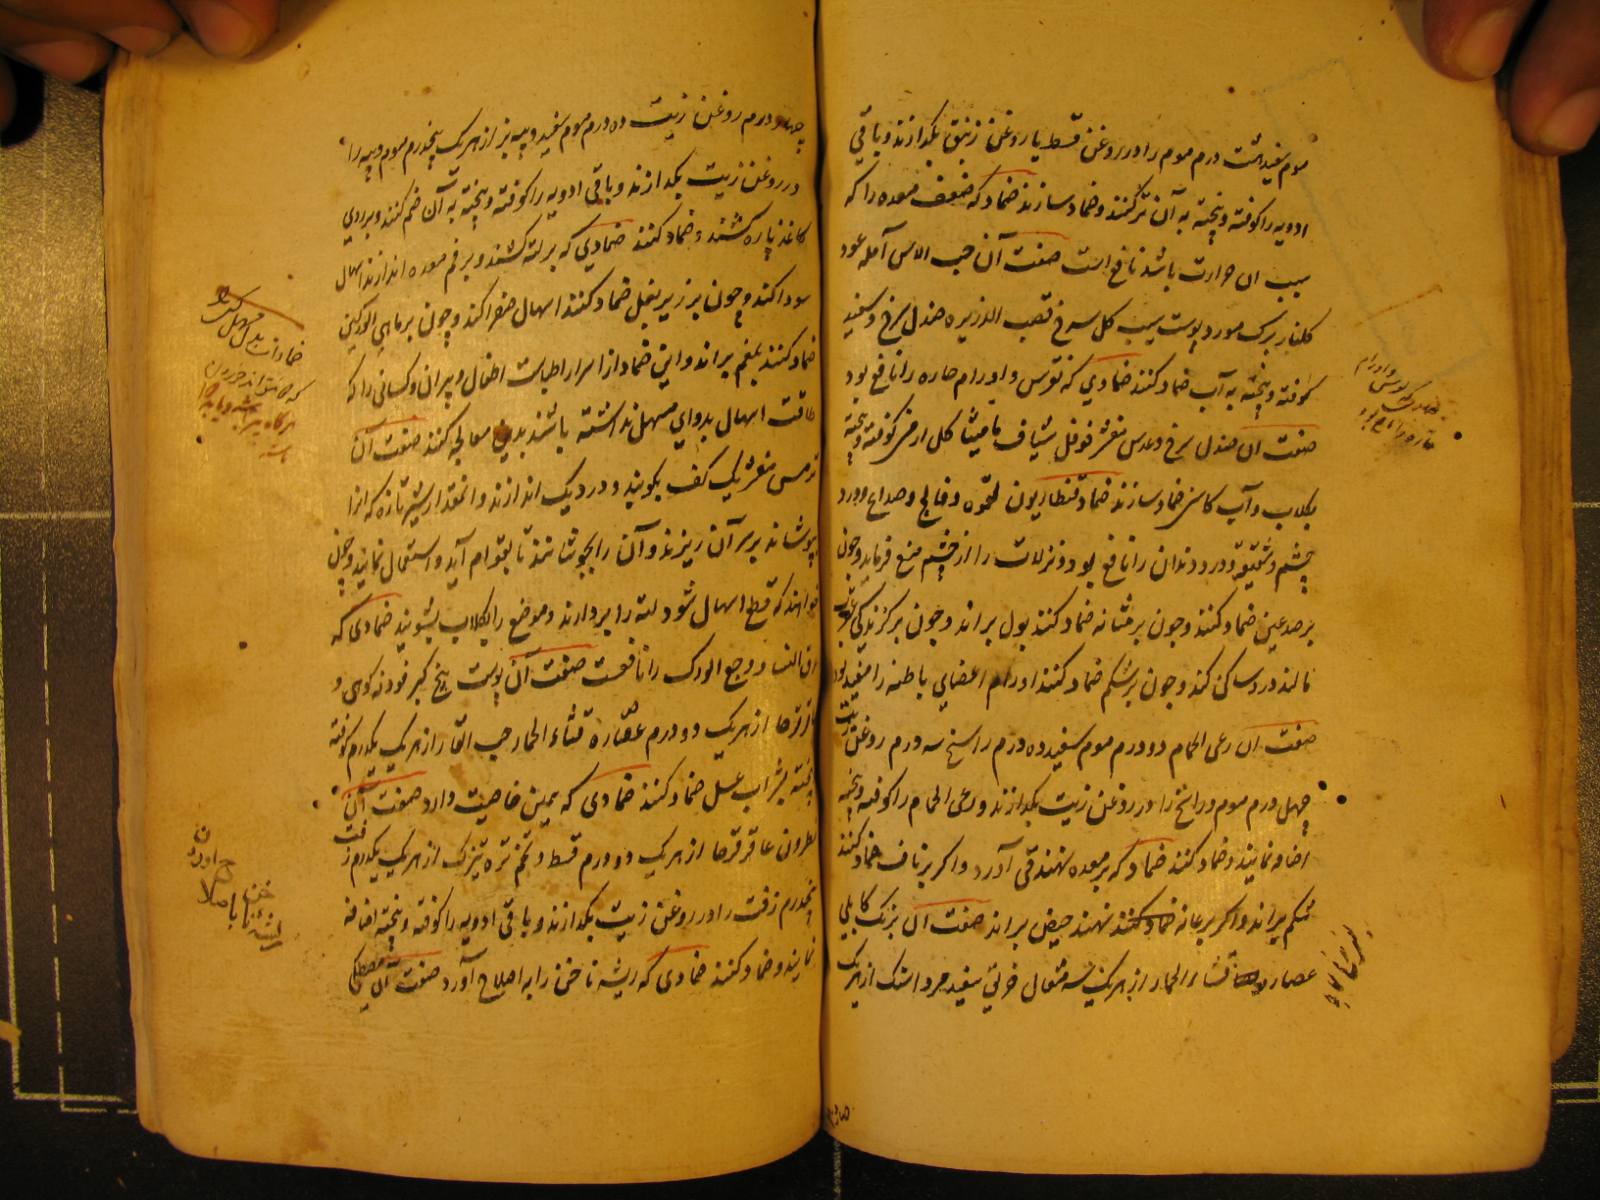 موم سفید هشت درم موم را در روغن قسط یا روغن زنبق بکدازند و باقی
ادویه را کوفته و پخته به آن تر کنند و ضماد سازند ضماد که ضعف معده را که
سبب ان حرارت باشد نافع است صفت آن حب الاس آمله عود
کلنار برک مورد پوست سیب کل سرخ قصب الذریره صندل سرخ و سفید
کوفته و پخته به آب ضماد کنند ضمادی که نقرس و اورام حاره را نافع بود
صفت ان صندل سرخ و عدس مقشر فوفل شیاف مامیثا کل ارمنی کوفته و پخته
بکلاب و آب کاسنی ضماد سازند ضماد قنطاریون لقوه و فالج و صداع و درد
چشم و شقیقه و درد دندان را نافع بود و نزلات را از چشم منع فرماید و چون
بر صدغین ضماد کنند و چون بر مثانه ضماد کنند بول براند و چون بر کزندکی عقرب
مالند درد ساکن کند و چون بر شکم ضماد کنند اورام اعضای باطنه را مفید بود
صفت ان رعی الحمام دو درم موم سفید ده درم راتینج سه درم روغن زیت
چهل درم موم و راتینج را در روغن زیت بکدازند و رعی الحمام را کوفته و پخته
اضافه نمایند و ضماد کنند ضماد که بر معده نهند قی آورد و اکر بر ناف ضماد کنند
شکم براند و اکر بر عانه نهند حیض براند صفت ان برنک کابلی
عصاره قثاء الحمار از هر یک سه مثقال خربق سفید مرداسنک از هر یک
ضمادی که نقرس و اورام
حاره را نافع بود
چهار درم روغن زیت ده درم موم سفید و پیه بز از هر یک پنجدرم موم و پیه را
در روغن زیت بکدازند و باقی ادویه را کوفته و پخته به آن ضم کنند و بر روی
کاغذ پاره کشند و ضماد کنند ضمادی که بر لته کشند و بر فم معده اندازند اسهال
سودا کند و چون بر زیر بغل ضماد کنند اسهال صفرا کند و چون بر ماهی الورکین
ضماد کنند بلغم براند و این ضماد از اسرار اطباست اطفال و پیران و کسانی را که
طاقت اسهال بدوای مسهل نداشته باشند بدین معالجه کنند صفت آن
ترمس مقشر یک کف بکوبند و در دیک اندازند و انمقدار شیر تازه که انرا
بپوشاند بر سر آن ریزند و آن را بجوشانند تا بقوام آید و استعمال نمایند و چون
خواهند که قطع اسهال شود لته را بردارند و موضع را بکلاب بشویند ضمادی که
عرق النسا و وجع الورک را نافعست صفت آن پوست بیخ کبر فودنه کوهی و
عاقرقرحا از هر یک دو درم عصاره قثاء الحمار حب الغار از هر یک یکدرم کوفته
پخته بشراب عسل ضماد کنند ضمادی که همین خاصیت دارد صفت آن
نطرون عاقرقرحا از هر یک دو درم قسط و تخم تره تیزک از هر یک یکدرم زفت
پنجدرم زفت را در روغن زیت بکدازند و باقی ادویه را کوفته و پخته اضافه
نمایند و ضماد کنند ضمادی که ریشه ناخن را به اصلاح آورد صفت ان مصطکی